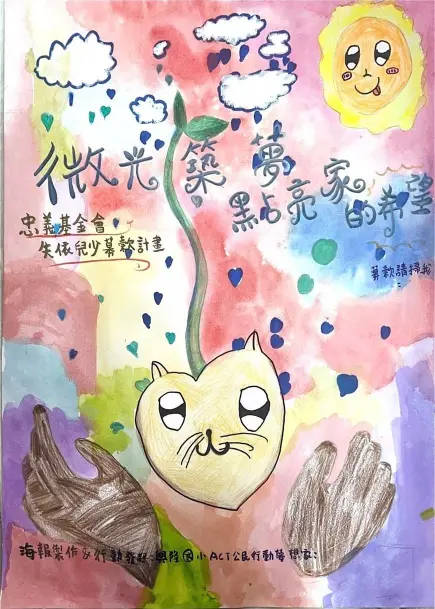 微光築夢
點亮家的希望
忠義基金會
失依兒少募款計畫
募款請掃我:
海報製作&行動發起:興隆國小ACT公民行動夢想家: